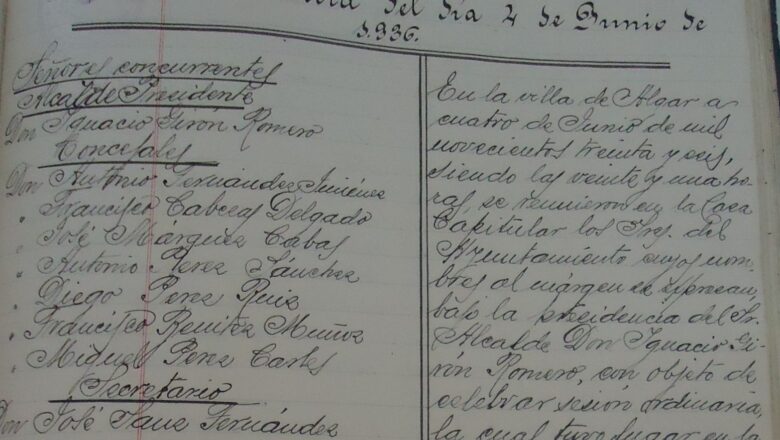 del día 4 de Junio de
1.936.
Señores concurrentes
Alcalde Presidente
Don Ignacio Giron Romero
Concejales
Don Antonio Fernández Jiménez
" Francisco Cabeas Delgado
" José Marquez Cabas
" Antonio Perez Sánchez
" Diego Perez Ruiz
" Francisco Benitez Muñoz
" Miguel Perez Cortes
Secretario
Don José Sanz Fernández
En la villa de Algar a
cuatro de Junio de mil
novecientos treinta y seis,
siendo las veinte y una ho-
ras, se reunieron en la Casa
Capitular los Srs. del
Ayuntamiento cuyos nom-
bres al márgen se expresan,
bajo la presidencia del Sr.
Alcalde Don Ignacio Gi-
rón Romero, con objeto de
celebrar sesión ordinaria,
la cual tuvo lugar en la